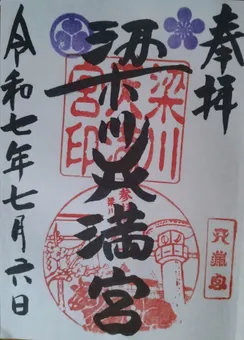 奉拝
梁川天満宮
令和七年七月六日
梁川
宮印
天満宮